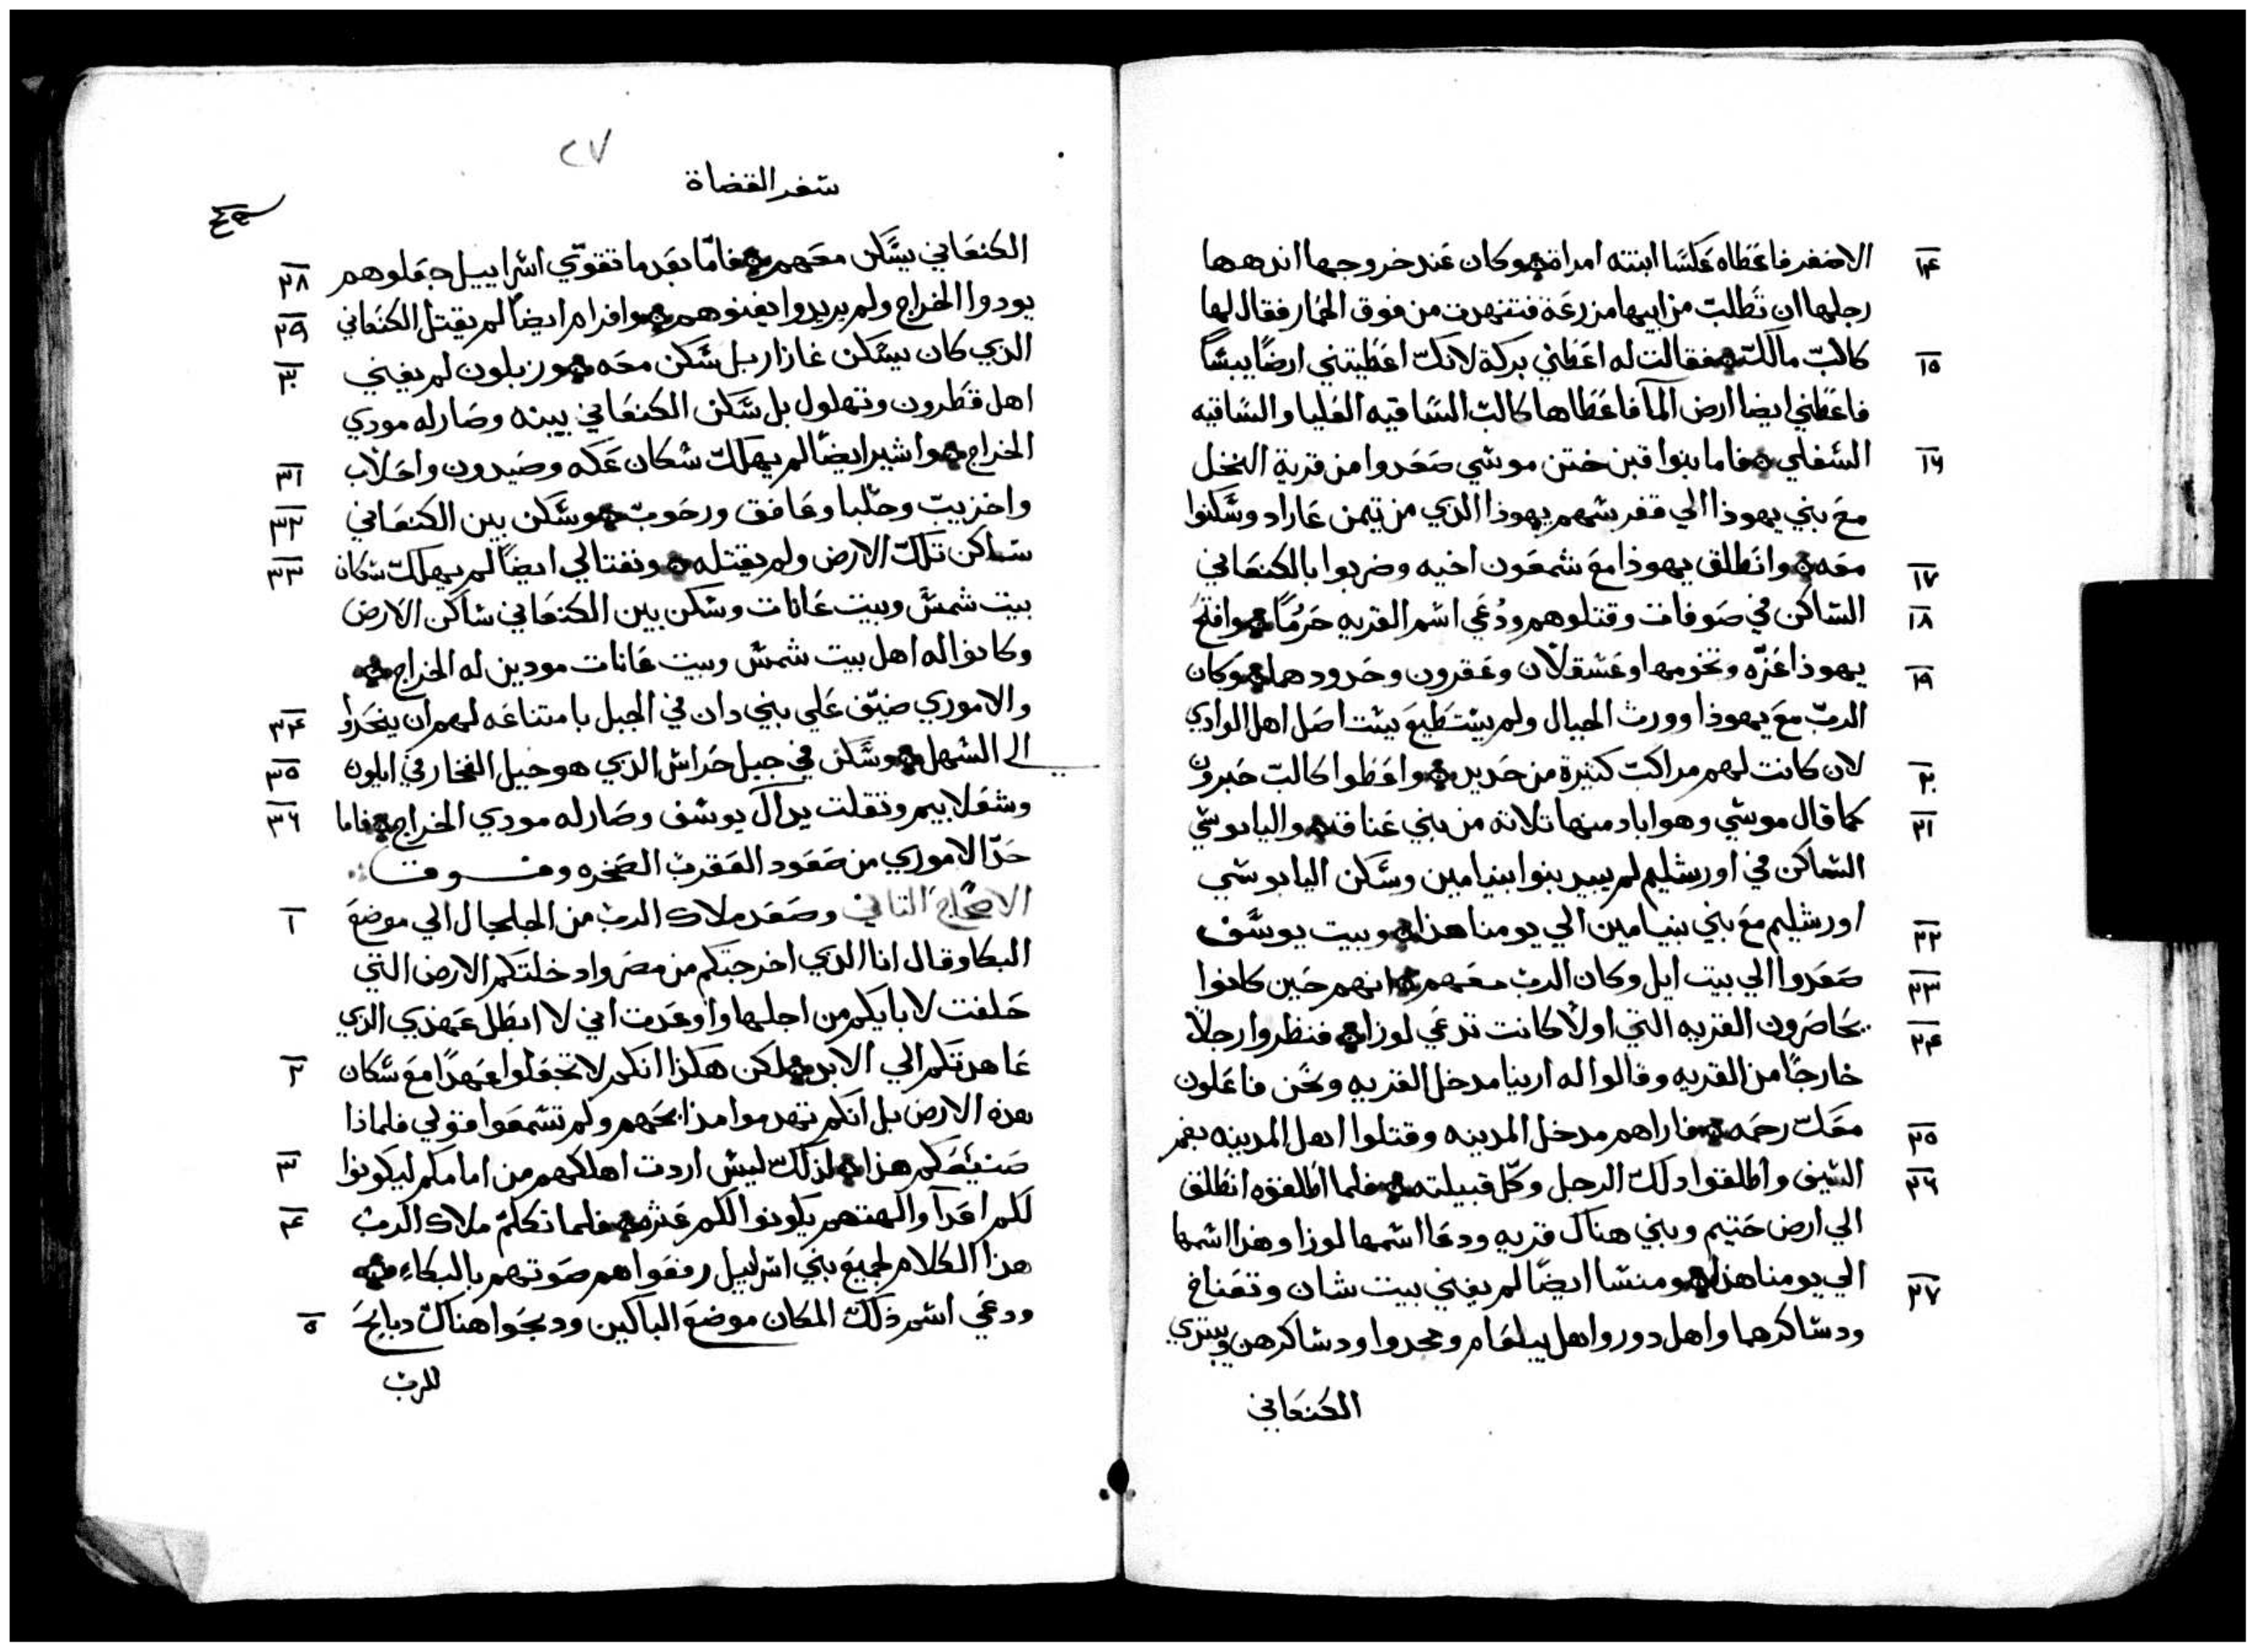 ١٤ الاصغر فاعطاه عكسا ابنته امراة وكان عند خروجها اندهها
رجلها ان تطلب من ابيها مزرعة فتنهدت من فوق الحمار فقال لها
١٥ كالب مالك فقالت له اعطني بركة لانك اعطيتني ارضًا يبسًا
فاعطني ايضا ارض المآ فاعطاها كالب الساقيه العليا والساقيه
١٦ السفلي فاما بنوا قين ختن موسي صعدوا من قرية النخل
مع بني يهوذا الي قفر سهم يهوذا الدي من تيمن عاراد وسكنوا
١٧ معه وانطلق يهوذا مع شمعون اخيه وضربوا بالكنعاني
١٨ الساكن في صوفات وقتلوهم ودُعي اسم القريه حَرُمًا وافتح
١٩ يهوذا غزّه وتخومها وعسقلان وعقرون وحدودها وكان
الربّ مع يهوذا وورث الجبال ولم يستطيع يستاصل اهل الوادي
٢٠ لان كانت لهم مراكب كتيرة من حديد واعطوا كالب حبرون
٢١ كما قال موسي وهو اباد منها تلاته من بني عناق واليابوسي
الساكن في اورشليم لم يبيد بنوا بنيامين وسكن اليابوسي
٢٢ اورشليم مع بني بنيامين الي يومنا هذا وبيت يوسف
٢٣ صعدوا الي بيت ايل وكان الرب معهم انهم حين كانوا
٢٤ يحاصرون القريه التي اولاً كانت تدعي لوزا فنظروا رجلاً
خارجًا من القريه وقالوا له ارينا مدخل القريه ونحن فاعلون
٢٥ معك رحمه فاراهم مدخل المدينه وقتلوا اهل المدينه بفم
٢٦ السيف واطلقوا دلك الرجل وكل قبيلته فلما اطلقوه انطلق
الي ارض حتيم وبني هناك قريه ودعا اسمها لوزا وهذا اسمها
٢٧ الي يومنا هذا ومنسا ايضًا لم يفني بيت شان وتعناخ
ودساكرهما واهل دور واهل يبلعام ومجدوا ودساكرهن وبيتدي
الكنعاني
٢٧
سفر القضاة
٢٨ الكنعاني يسكن معهم فامّا بعد ما تقوّي اسراييل جعلوهم
٢٩ يودوا الخراج ولم يريدوا يفنوهم وافرام ايضاً لم يقتل الكنعاني
٣٠ الدي كان يسكن غازار بل سكن معه وزبلون لم يفني
اهل قطرون ونهلول بل سكن الكنعاني بينه وصار له مودي
٣١ الخراج واشير ايضًا لم يهلك سكان عكه وصيدون واحلاب
٣٢ واخزيب وحلبا وعافق ورحوب وسكن بين الكنعاني
٣٣ ساكن تلك الارض ولم يقتله ونفتالي ايضاً لم يهلك سكان
بيت شمس وبيت عانات وسكن بين الكنعاني ساكن الارض
وكانوا له اهل بيت شمس وبيت عانات مودين له الخراج
٣٤ والاموري ضيّق علي بني دان في الجبل بامتناعه لهم ان ينحدروا
٣٥ الي السهل وسكن في جبل حراس الدي هو جبل الفخار في ايلون
٣٦ وشعلابيم وتقلت يد ال يوسف وصار له مودي الخراج فاما
حدّ الاموري من صعود العقرب الصخره وفوق
١ الاصحاح التاني وصعد ملاك الرب من الجلجال الي موضع
البكا وقال انا الدي اخرجتكم من مصر وادخلتكم الارض التي
حلفت لابايكم من اجلها واوعدت اني لا ابطل عهدي الدي
٢ عاهدتكم الي الابد لكن هكذا انكم لا تجعلوا عهدًا مع سكان
هده الارض بل انكم تهدموا مذابحهم ولم تسمعوا قولي فلماذا
٣ صنعتم هذا لذلك ليس اردت اهلكهم من امامكم ليكونوا
٤ لكم اعدآ والهتهم يكونوا لكم عثره فلما تكلم ملاك الرب
هذا الكلام لجميع بني اسراييل رفعوا هم صوتهم بالبكاء
٥ ودعي اسم ذلك المكان موضع الباكين ودبحوا هناك دبايح
للرب